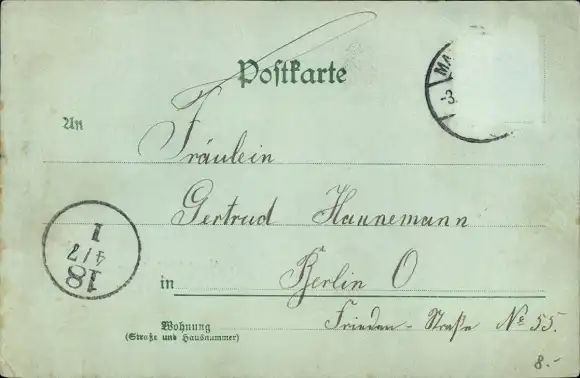 Postkarte
MA
-3.
An
Fräulein
Gertrud Hannemann
18
4/7
I
in
Berlin O
Wohnung
(Straße und Hausnummer)
Frieden-Straße No 55.
8.-